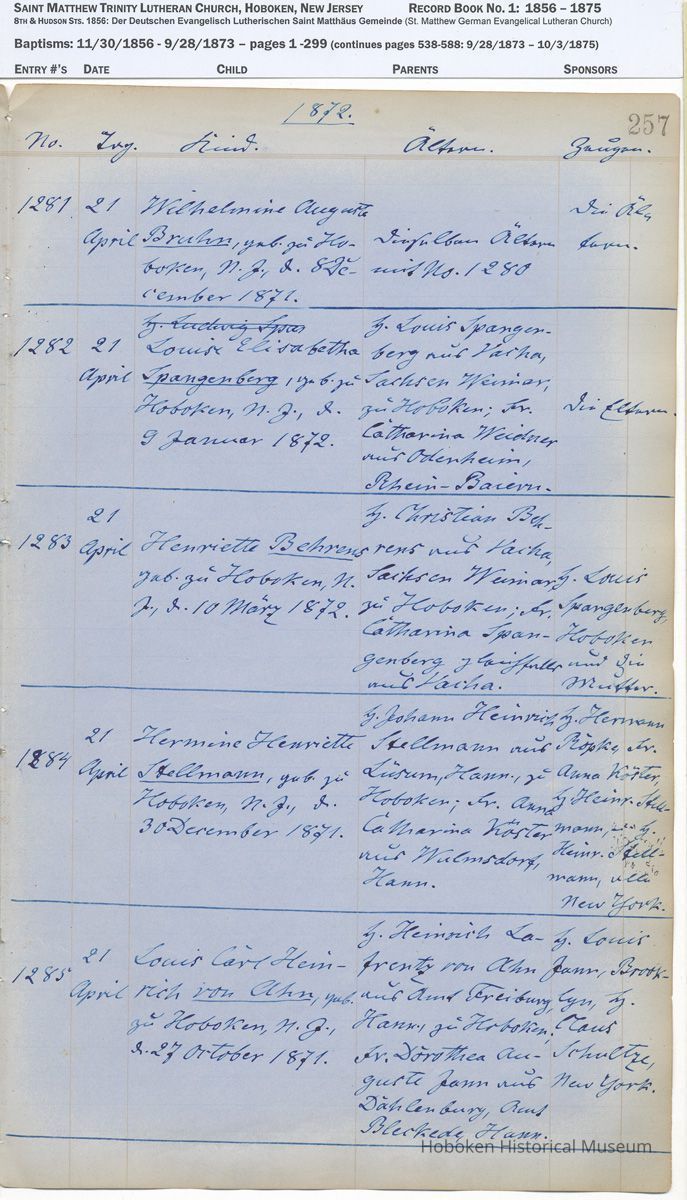 SAINT MATTHEW TRINITY LUTHERAN CHURCH, HOBOKEN, NEW JERSEY RECORD BOOK NO. 1: 1856 – 1875
8TH & HUDSON STS. 1856: Der Deutschen Evangelisch Lutherischen Saint Matthäus Gemeinde (St. Matthew German Evangelical Lutheran Church)
Baptisms: 11/30/1856 - 9/28/1873 – pages 1 -299 (continues pages 538-588: 9/28/1873 – 10/3/1875)
ENTRY #'S DATE CHILD PARENTS SPONSORS
1872.
257
No. Tag. Kind. Ältern. Zeugen.
1281 21 April
Wilhelmine Auguste
Bruhn, geb. zu Ho-
boken, N. J., d. 8 De-
cember 1871.
Dieselben Ältern
mit No. 1280
Die Äl-
tern.
1282 21 April
H. Ludwig Span
Louise Elisabetha
Spangenberg, geb. zu
Hoboken, N. J., d.
9 Januar 1872.
H. Louis Spangen-
berg aus Vacha,
Sachsen Weimar,
zu Hoboken; Fr.
Catharina Weidner
aus Odenheim,
Rhein-Baiern.
Die Eltern.
1283 21 April
Henriette Behrens
geb. zu Hoboken, N.
J., d. 10 März 1872.
H. Christian Beh-
rens aus Vacha,
Sachsen Weimar,
zu Hoboken; Fr.
Catharina Span-
genberg gleichfalls
aus Vacha.
H. Louis
Spangenberg,
Hoboken
und die
Mutter.
1284 21 April
Hermine Henriette
Stellmann, geb. zu
Hoboken, N. J., d.
30 December 1871.
H. Johann Heinrich
Stellmann aus
Lüsum, Hann., zu
Hoboken; Fr. Anna
Catharina Köster
aus Wulmsdorf,
Hann.
H. Hermann
Röpke, Fr.
Anna Köster,
H. Heinr. Stell-
mann, H.
Heinr. Stell-
mann, alle
New York.
1285 21 April
Louis Carl Hein-
rich von Ahn, geb.
zu Hoboken, N. J.,
d. 27 October 1871.
H. Heinrich La-
frentz von Ahn
aus Amt Freiburg,
Hann., zu Hoboken;
Fr. Dorothea Au-
guste Jann aus
Dahlenburg, Amt
Bleckede, Hann.
H. Louis
Jann, Brook-
lyn, H.
Claus
Schultze,
New York.
Hoboken Historical Museum